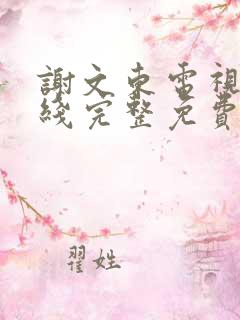 謝文東電視
綫完整免費
翟姓